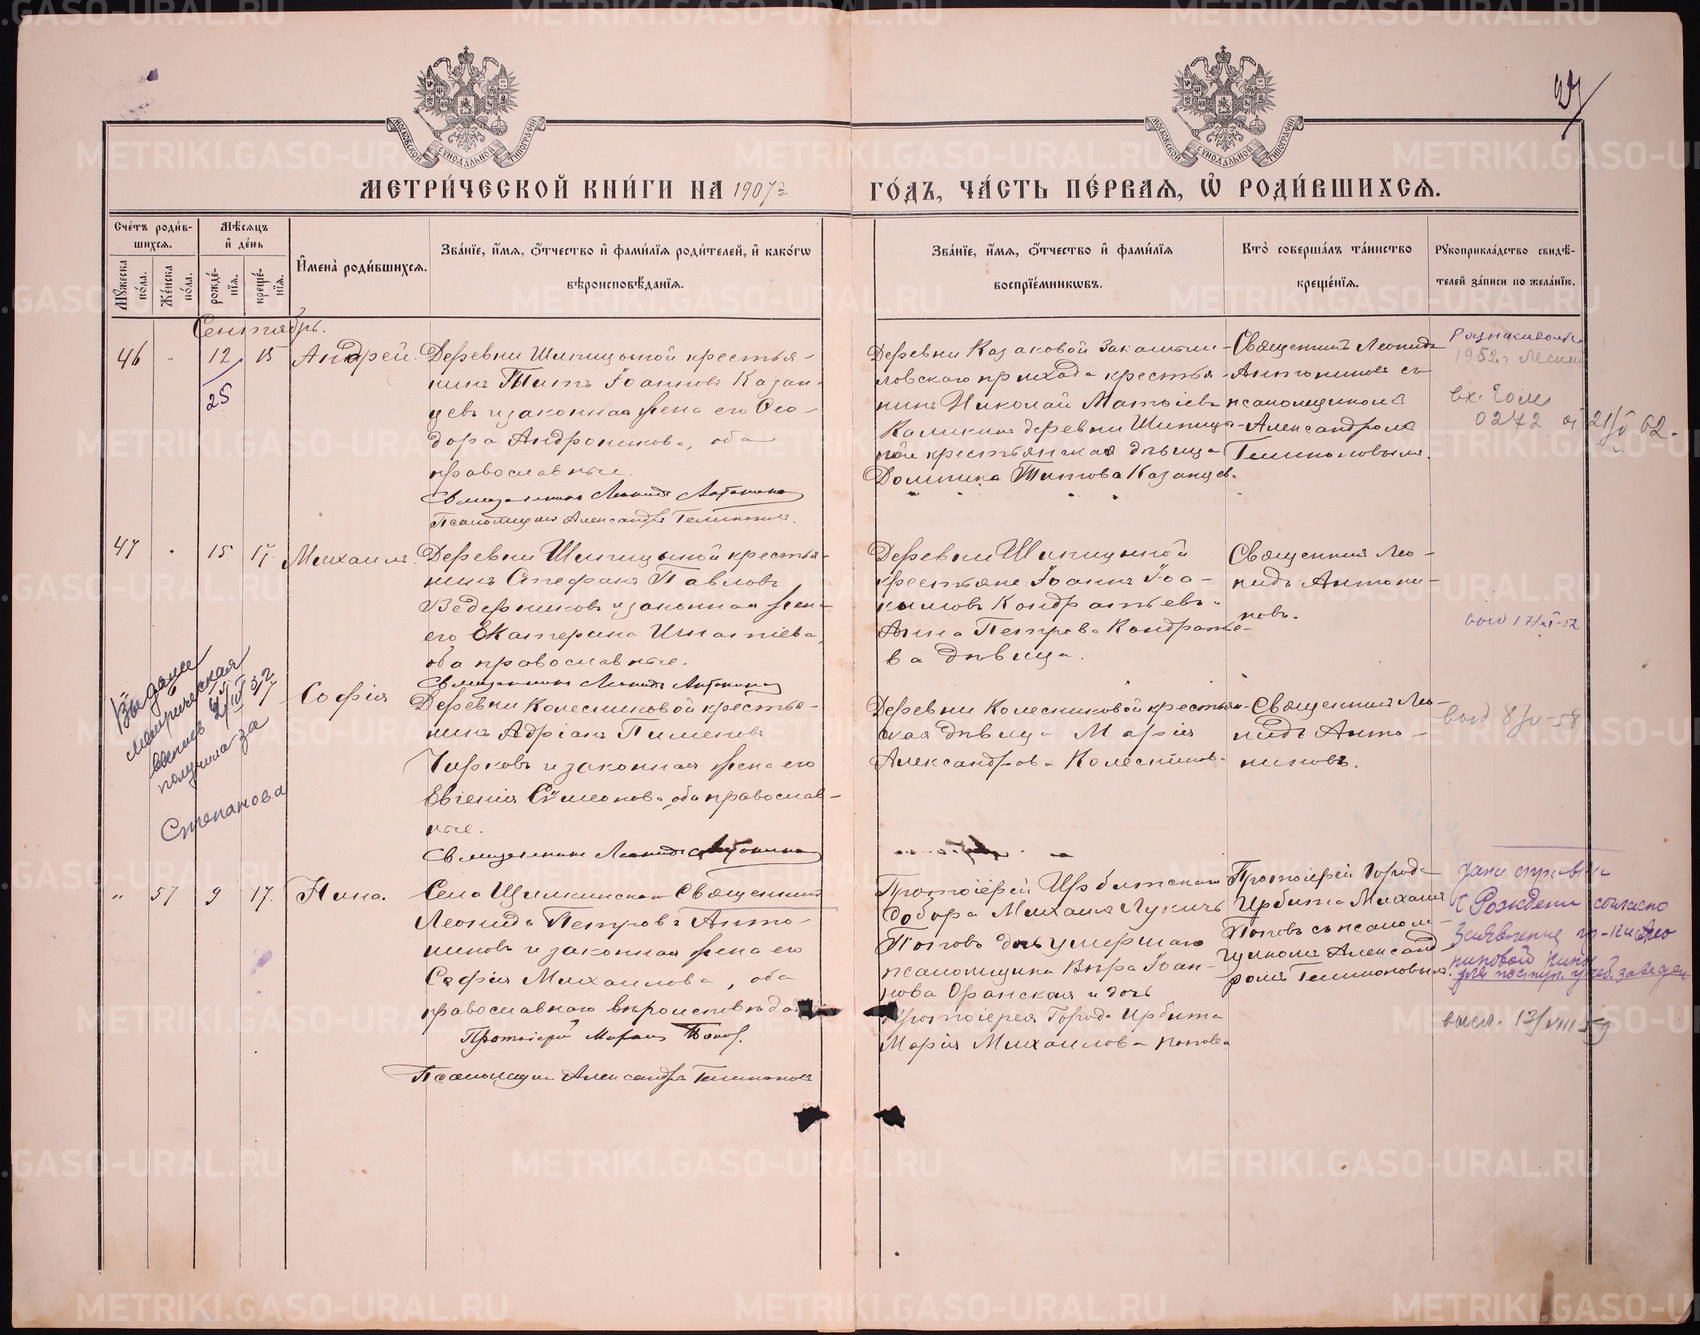 МЕТРИ́ЧЕСКОЙ КНИ́ГИ НА 1907 г
ГО́ДЪ, ЧА́СТЬ ПЕ́РВАЯ, Ѡ РОДИ́ВШИХСЯ.
МОСКОВСКОЙ СѴНОДАЛЬНОЙ ТИПОГРАФІИ
МОСКОВСКОЙ СѴНОДАЛЬНОЙ ТИПОГРАФІИ
Сче́тъ роди́в-
шихся.
Мѣ́сяцъ
и де́нь
Му́жеска по́ла.
Же́нска по́ла.
рожде́-нія.
креще́-нія.
Имена̀ роди́вшихся.
Зва́ніе, и́мя, ѻ́тчество и фами́лія роди́телей, и како́гѡ
вѣроисповѣ́данія.
Зва́ніе, и́мя, ѻ́тчество и фами́лія
воспріе́мникѡвъ.
Кто̀ соверша́лъ та́инство
креще́нія.
Рукоприкла́дство свидѣ́-
телей за́писи по жела́нію.
Сентябрь.
46 " 12 15 Андрей.
25
Деревни Шипицыной крестья-
нинъ Титъ Іоанновъ Казан-
цевъ и законная жена его Ѳео-
дора Андроникова, оба
православные.
Священникъ Леонидъ Антониновъ
Псаломщикъ Александръ
Деревни Казаковой
ловскаго прихода крестья-
нинъ Николай Матѳіевъ
Каликинъ деревни Шипицы-
ной крестьянская дѣвица
Домника Титова Казанцев.
Священникъ Леонидъ
Антониновъ съ
псаломщикомъ
Александромъ
1952г
вх.
0272 от 21/V 62.
47 " 15 17 Михаилъ.
Деревни Шипицыной крестья-
нинъ Стефанъ Павловъ
Ведерниковъ и законная жен-
его Екатерина Игнатіева,
оба православные.
Священникъ Леонидъ Антониновъ
Деревни Шипицыной
крестьяне: Іоаннъ Іоа-
кимовъ Кондратьевъ
Анна Петрова Кондрать-
ва дѣвица.
Священникъ Лео-
нидъ Антони-
новъ.
выд 17/XI-52
Выдана
метрическая
получила за
Степанова
17 Софія
Деревни Колесниковой крестья-
нинъ Адріанъ Пименовъ
Чирковъ и законная жена его
Евгенія Сѵмеонова, оба православ-
ные.
Священникъ Леонидъ Антониновъ
Деревни Колесниковой крестьян-
ская дѣвица Марія
Александрова Колесников.
Священникъ Лео-
нидъ Анто-
ниновъ.
выд 8/IV-58
" 57 9 17. Нина.
Села Священникъ
Леонидъ Петровъ Анто-
ниновъ и законная жена его
Софія Михаилова, оба
православнаго вѣроисповѣда
Протоіерей Михаилъ Попов.
Псаломщикъ Александръ
Протоіерей Ирбитскаго
собора Михаилъ Лукичъ
Поповъ дочь умершаго
псаломщика Вѣра Іоан-
нова Оранская и дочь
Протоіерея Города Ирбита
Марія Михаилова Попова
Протоіерей Города
Ирбита Михаилъ
Поповъ съ псалом-
щикомъ Александ
ромъ
Дана справка
о Рождени согласно
Заявления гр-ки Анто
ниновой Нины
для поступ. учеб. заведен
высл. 13/VIII 59